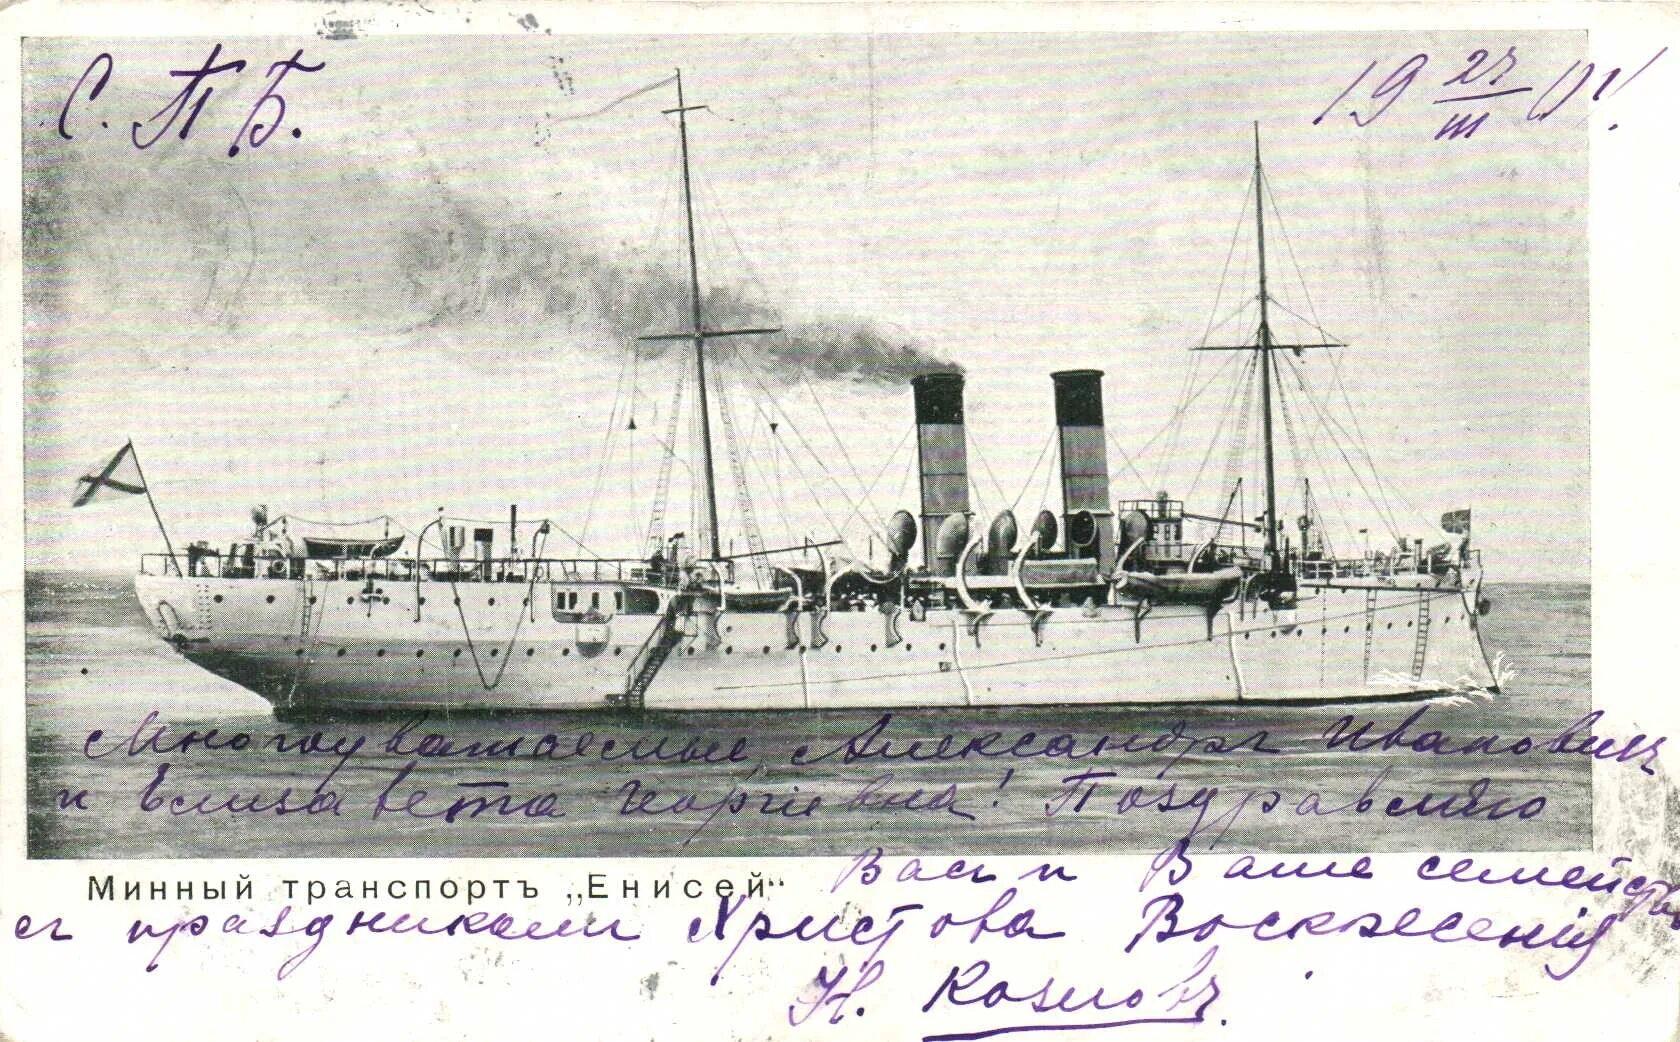 С. П Б.
19 24/III 04!
Многоуважаемые, Александръ Ивановичъ
и Елизавета Георгіевна! Поздравляю
Васъ и Ваше семейство
Минный транспортъ „Енисей“
съ праздникомъ Христова Воскресенія
Н. Козловъ.